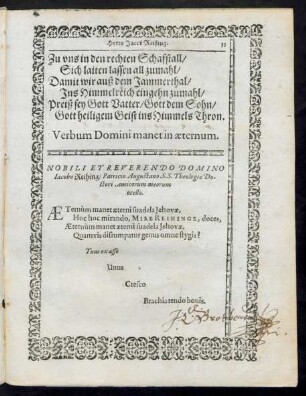 Herrn Jacob Reihing. 11
Zu vns in den rechten Schaffstall/
Sich laiten lassen all zumahl/
Damit wir auß dem Jammerthal/
Ins Himmelreich eingehn zumahl/
Preiß sey Gott Vatter/Gott dem Sohn/
Gott heiligem Geist ins Himmels Thron.
Verbum Domini manet in æternum.
NOBILI ET REVERENDO DOMINO
Iacobo Reihing, Patricio Augustano, S.S. Theologiæ Do-
ctore amicorum meorum
ocello.
ÆTernùm manet æterni suadela Jehovæ,
Hoc hoc mirando, MIRE REIHINGE, doces,
Æternùm manet æterni suadela Jehovæ,
Quamvis disrumpatur genus omne stygis?
Tuus ex asse
Unus
Cresco
Brachia tendo bonis.